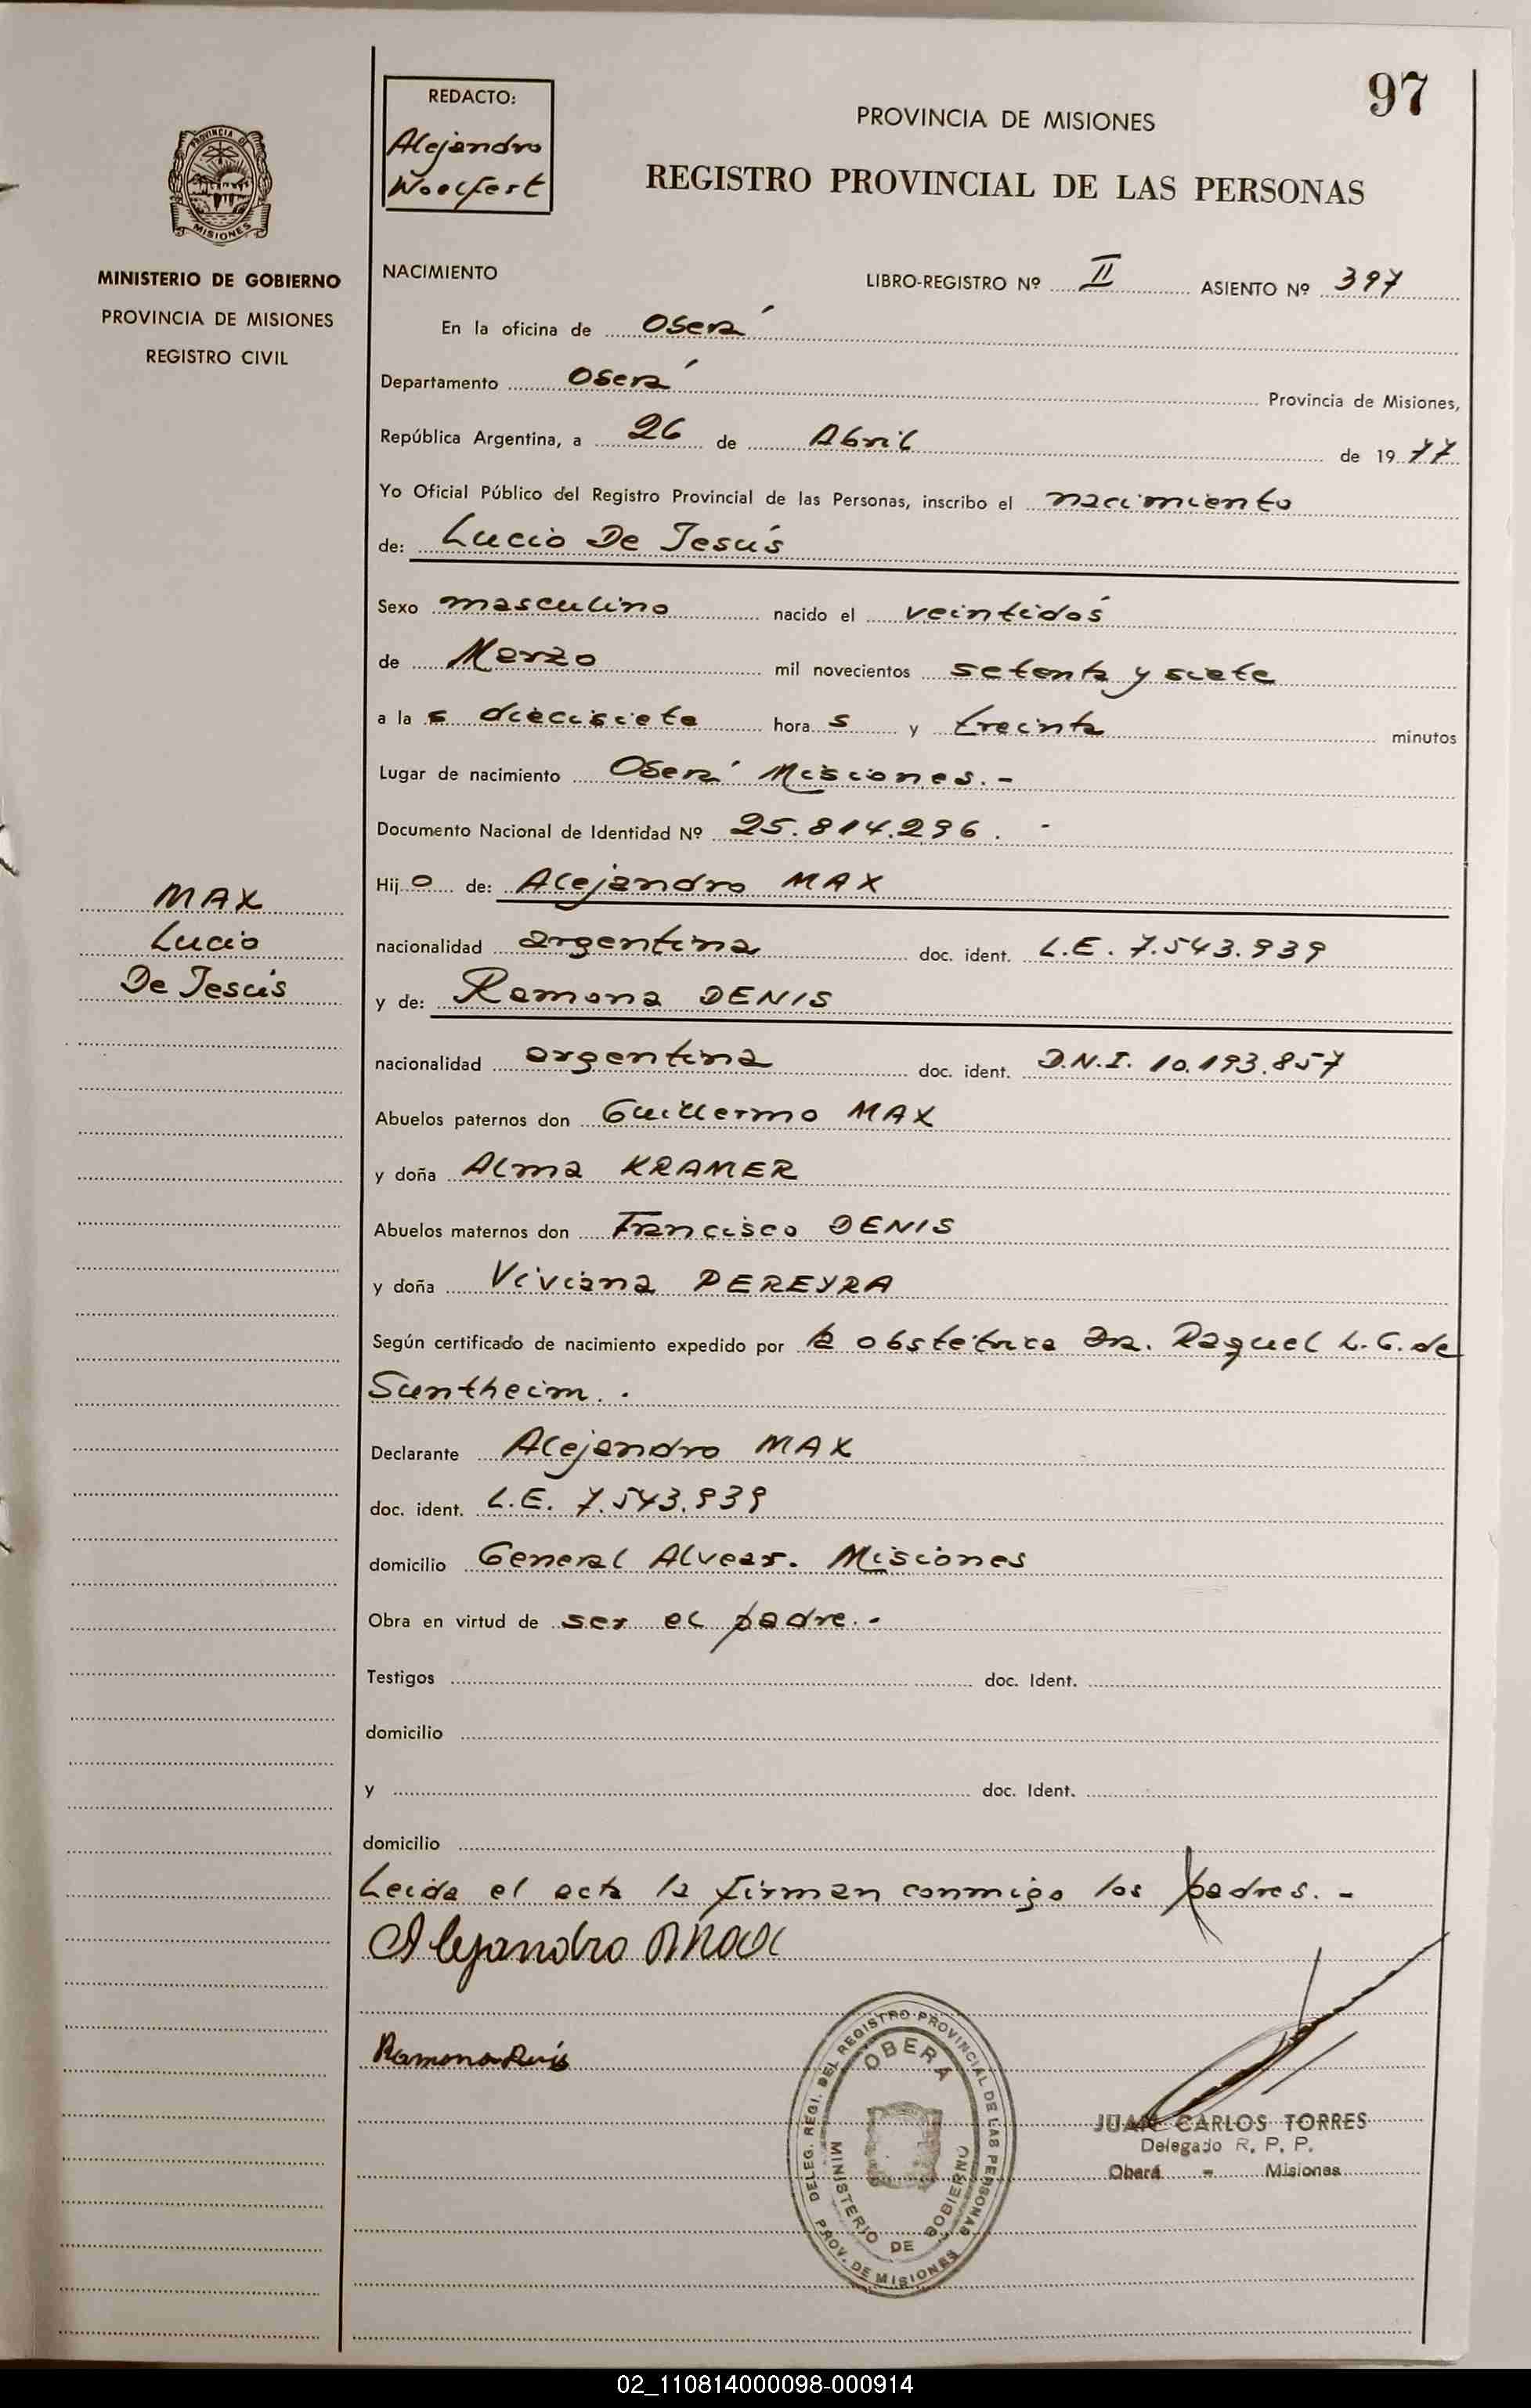 97
REDACTO:
Alejandro
Woelfert
PROVINCIA DE MISIONES
REGISTRO PROVINCIAL DE LAS PERSONAS
PROVINCIA DE
MISIONES
MINISTERIO DE GOBIERNO
PROVINCIA DE MISIONES
REGISTRO CIVIL
NACIMIENTO LIBRO-REGISTRO Nº II ASIENTO Nº 397
En la oficina de Oberá
Departamento Oberá Provincia de Misiones,
República Argentina, a 26 de Abril de 1977
Yo Oficial Público del Registro Provincial de las Personas, inscribo el nacimiento
de: Lucio De Jesús
Sexo masculino nacido el veintidós
de Marzo mil novecientos setenta y siete
a las diecisiete horas y treinta minutos
Lugar de nacimiento Oberá Misiones.-
Documento Nacional de Identidad Nº 25.814.296.-
Hijo de: Alejandro MAX
MAX
Lucio
De Jesús
nacionalidad argentina doc. ident. L.E. 7.543.939
y de: Ramona DENIS
nacionalidad argentina doc. ident. D.N.I. 10.193.857
Abuelos paternos don Guillermo MAX
y doña Alma KRAMER
Abuelos maternos don Francisco DENIS
y doña Viviana PEREYRA
Según certificado de nacimiento expedido por la obstétrica Dra. Raquel L.G. de
Suntheim.-
Declarante Alejandro MAX
doc. ident. L.E. 7.543.939
domicilio General Alvear. Misiones
Obra en virtud de ser el padre.-
Testigos doc. Ident.
domicilio
y doc. Ident.
domicilio
Leída el acta la firman conmigo los padres.-
Alejandro Max
Ramona
DELEG. REGI. DEL REGISTRO PROVINCIAL DE LAS PERSONAS
OBERA
MINISTERIO DE GOBIERNO
PROV. DE MISIONES
JUAN CARLOS TORRES
Delegado R. P. P.
Oberá - Misiones
02_110814000098-000914